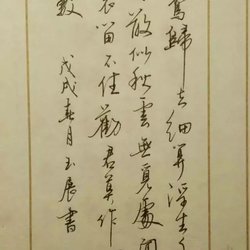 鶯歸去細算浮生
散似秋雲無覓處聞
衣留不住勸君莫作
數 戊戌春月玉展書